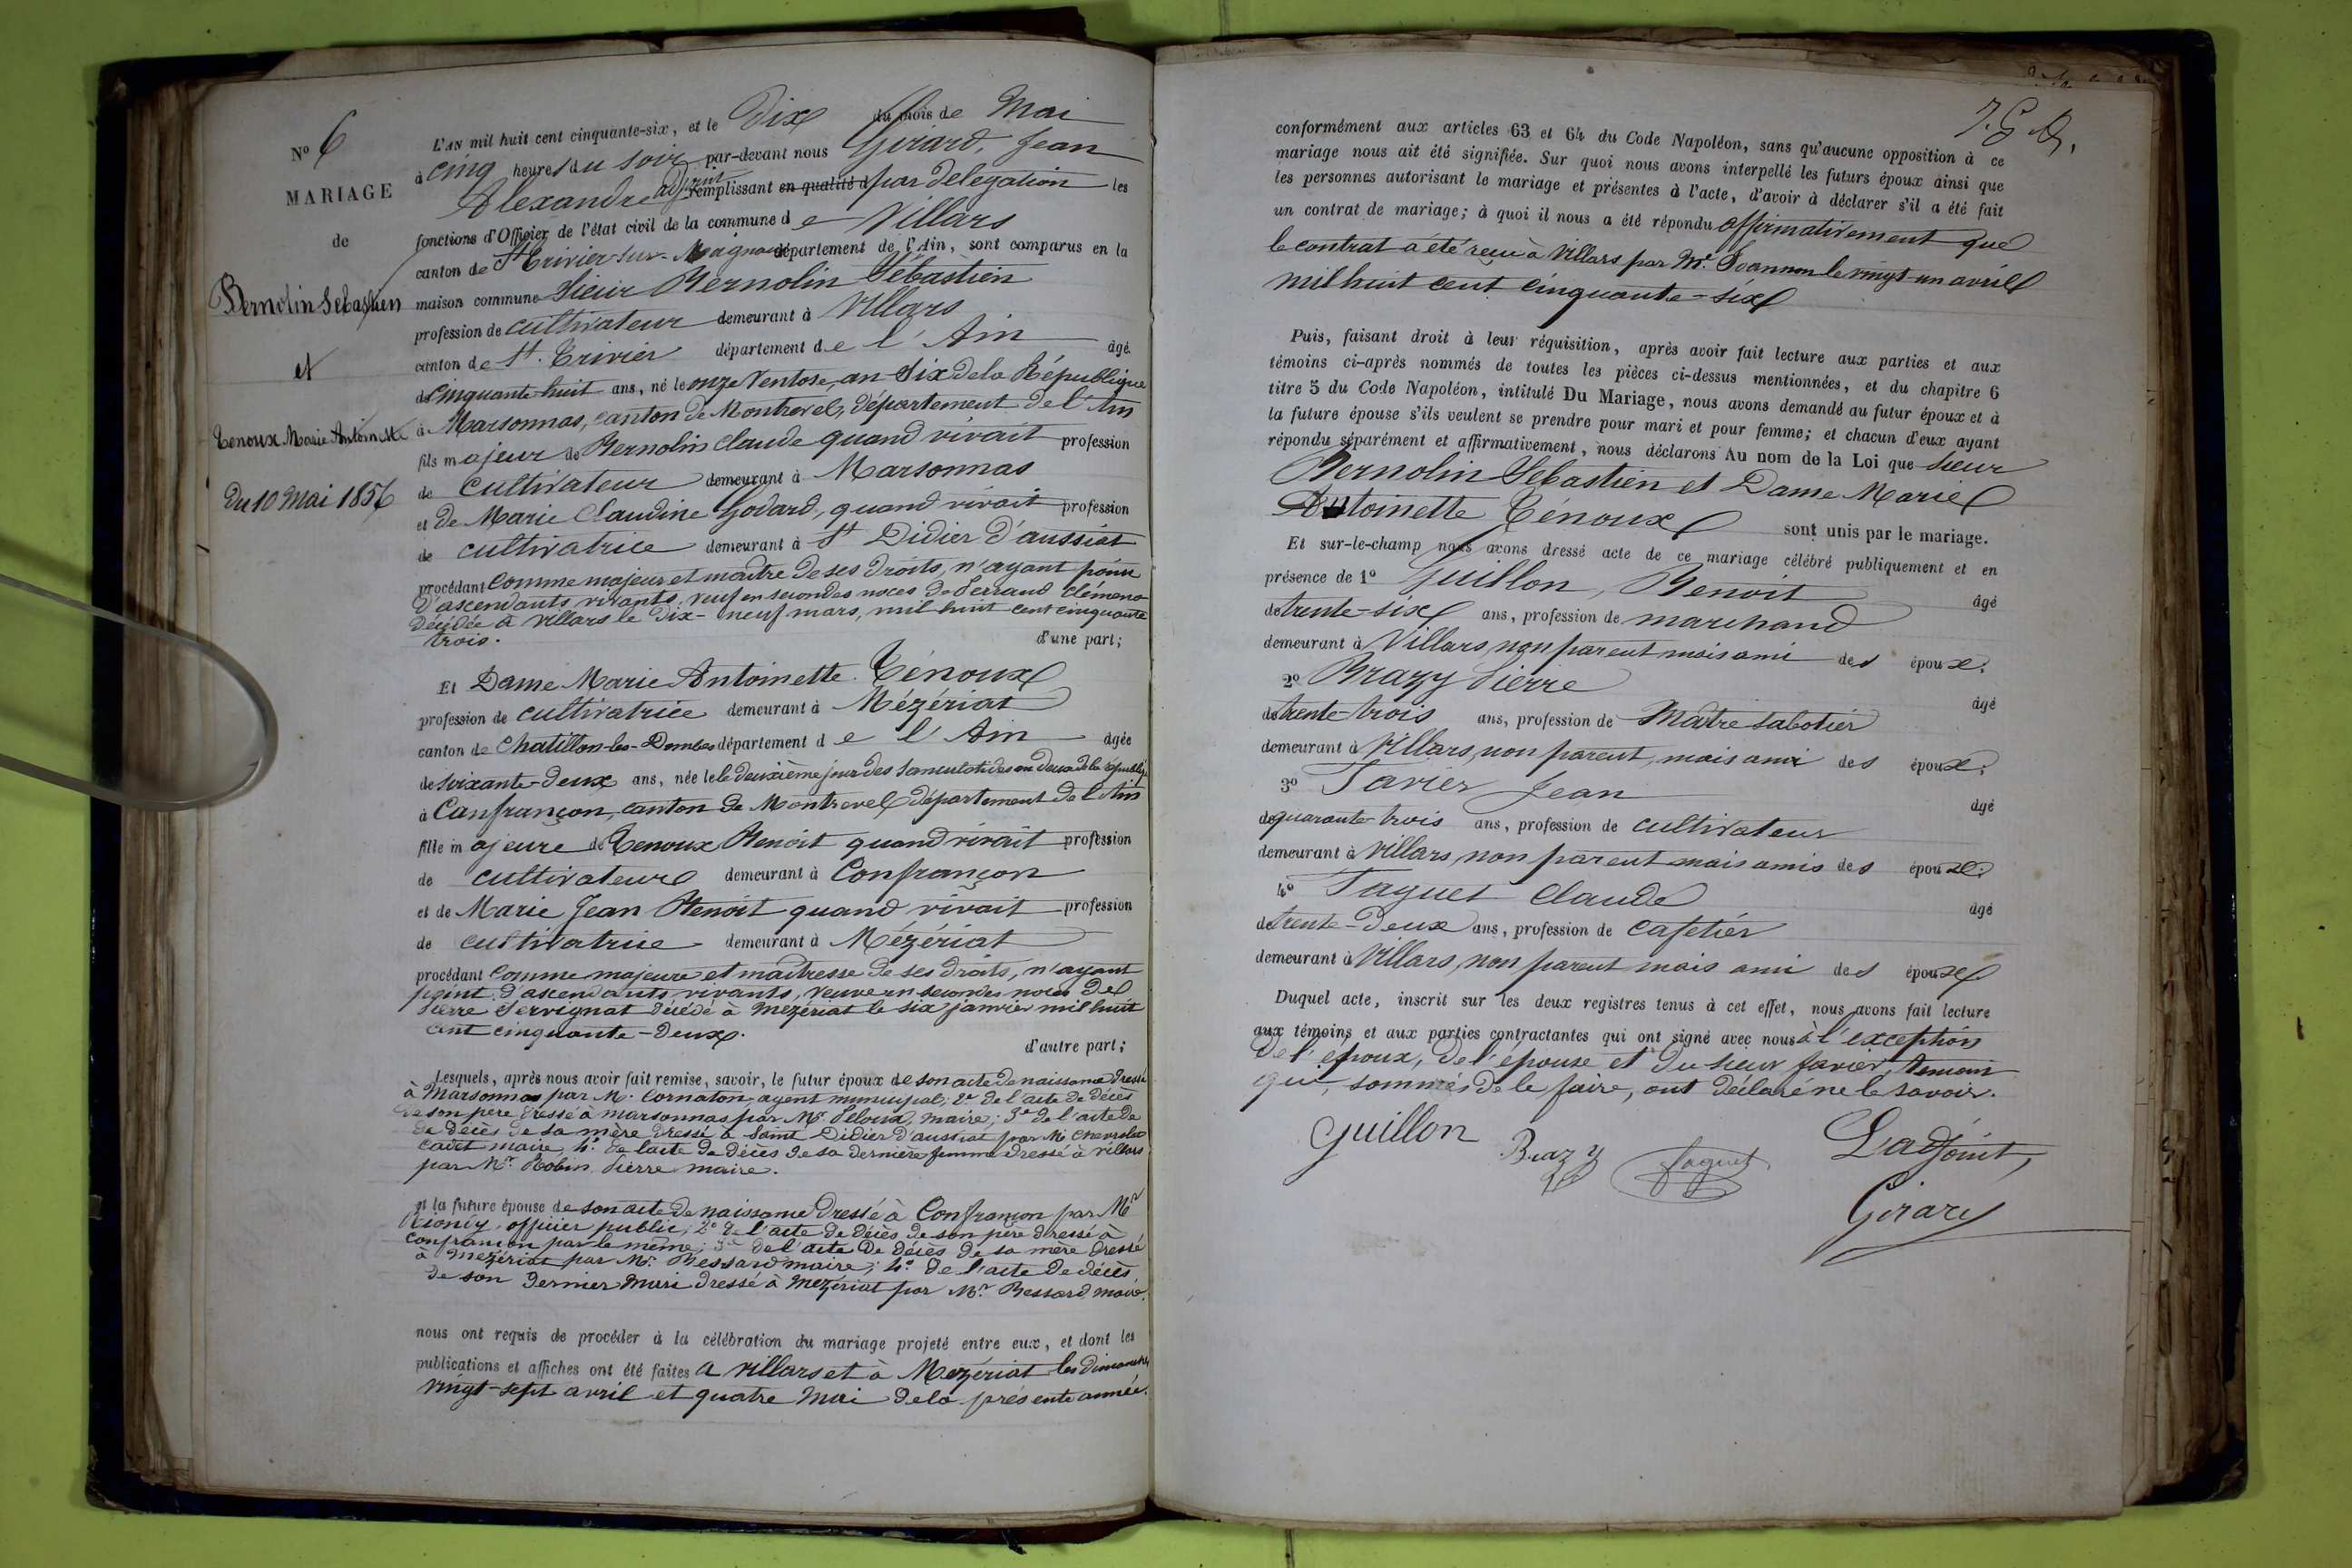 N° 6
MARIAGE
de
Bernolin Sebastien
et
Tenoux Marie Antoinette
du 10 mai 1856
L'AN mil huit cent cinquante-six, et le Dix du mois de Mai
à cinq heures du soir par-devant nous Girard, Jean
Alexandre adjoint remplissant en qualité d par delegation les
fonctions d'Officier de l'état civil de la commune de Villars
canton de St Trivier-sur-Moignans département de l'Ain, sont comparus en la
maison commune Sieur Bernolin Sébastien
profession de cultivateur demeurant à Villars
canton de St. Trivier département de l'Ain âgé
de cinquante huit ans, né le onze Ventose, an Six de la République
à Marsonnas, canton de Montrevel, département de l'Ain
fils majeur de Bernolin Claude quand vivait profession
de cultivateur demeurant à Marsonnas
et de Marie Claudine Godard, quand vivait profession
de cultivatrice demeurant à St Didier d'aussiat
procédant comme majeur et maître de ses droits, n'ayant point
d'ascendants vivants, veuf en secondes noces de Ferraud Clémence
décédée à Villars le dix-neuf mars, mil huit cent cinquante
trois. d'une part;
Et Dame Marie Antoinette Ténoux
profession de cultivatrice demeurant à Mézériat
canton de Chatillon-les-Dombes département de l'Ain âgée
de soixante-deux ans, née le le deuxième jour des Sanculotides an deux de la républiq
à Confrançon, canton de Montrevel département de l'Ain
fille majeure de Tenoux Benoit quand vivait profession
de cultivateur demeurant à Confrançon
et de Marie Jean Benoit quand vivait profession
de cultivatrice demeurant à Mézériat
procédant comme majeure et maîtresse de ses droits, n'ayant
point d'ascendants vivants, veuve en secondes noces de
Pierre Servignat décédé à Mezériat le six janvier mil huit
cent cinquante-deux.
d'autre part;
Lesquels, après nous avoir fait remise, savoir, le futur époux de son acte de naissance dressé
à Marsonnas par M. Cornaton, agent municipal; 2° de l'acte de décès
de son père dressé à marsonnas par Mr Peloux, maire; 3° de l'acte de
de décès de sa mère dressé à Saint Didier d'aussiat par Mr Chevrolat
cadet maire, 4° de l'acte de décès de sa dernière femme dressé à villars
par Mr. Robin Pierre maire.
et la future épouse de son acte de naissance dressé à Confrançon par Mr
officier public; 2° de l'acte de décès de son père dressé à
Confrançon par le même; 3° de l'acte de décès de sa mère dressé
à Mezériat par Mr. Bessard maire; 4° de l'acte de décès
de son dernier mari dressé à Mezériat par Mr. Bessard maire.
nous ont requis de procéder à la célébration du mariage projeté entre eux, et dont les
publications et affiches ont été faites à villars et à Mezériat les dimanches
vingt-sept avril et quatre mai de la présente année.
J. G. A.
conformément aux articles 63 et 64 du Code Napoléon, sans qu'aucune opposition à ce
mariage nous ait été signifiée. Sur quoi nous avons interpellé les futurs époux ainsi que
les personnes autorisant le mariage et présentes à l'acte, d'avoir à déclarer s'il a été fait
un contrat de mariage; à quoi il nous a été répondu affirmativement que
le contrat a été reçu à Villars par Me. Joannon le vingt-un avril
mil huit cent cinquante-six
Puis, faisant droit à leur réquisition, après avoir fait lecture aux parties et aux
témoins ci-après nommés de toutes les pièces ci-dessus mentionnées, et du chapitre 6
titre 5 du Code Napoléon, intitulé Du Mariage, nous avons demandé au futur époux et à
la future épouse s'ils veulent se prendre pour mari et pour femme; et chacun d'eux ayant
répondu séparément et affirmativement, nous déclarons Au nom de la Loi que sieur
Bernolin Sebastien et Dame Marie
Antoinette Ténoux sont unis par le mariage.
Et sur-le-champ nous avons dressé acte de ce mariage célébré publiquement et en
présence de 1° Guillon, Benoit âgé
de trente-six ans, profession de marchand
demeurant à Villars, non parent mais ami des époux;
2° Brazy Pierre âgé
de trente-trois ans, profession de Maître sabotier
demeurant à Villars, non parent, mais ami des époux;
3° Javier Jean âgé
de quarante-trois ans, profession de cultivateur
demeurant à Villars, non parent mais amis des époux;
4° Faguet Claude âgé
de trente-deux ans, profession de cafetier
demeurant à Villars, non parent mais ami des époux
Duquel acte, inscrit sur les deux registres tenus à cet effet, nous avons fait lecture
aux témoins et aux parties contractantes qui ont signé avec nous à l'exception
de l'époux, de l'épouse et du sieur Javier, temoin
qui, sommés de le faire, ont déclaré ne le savoir.
Guillon Brazy faguet L'adjoint,
Girard